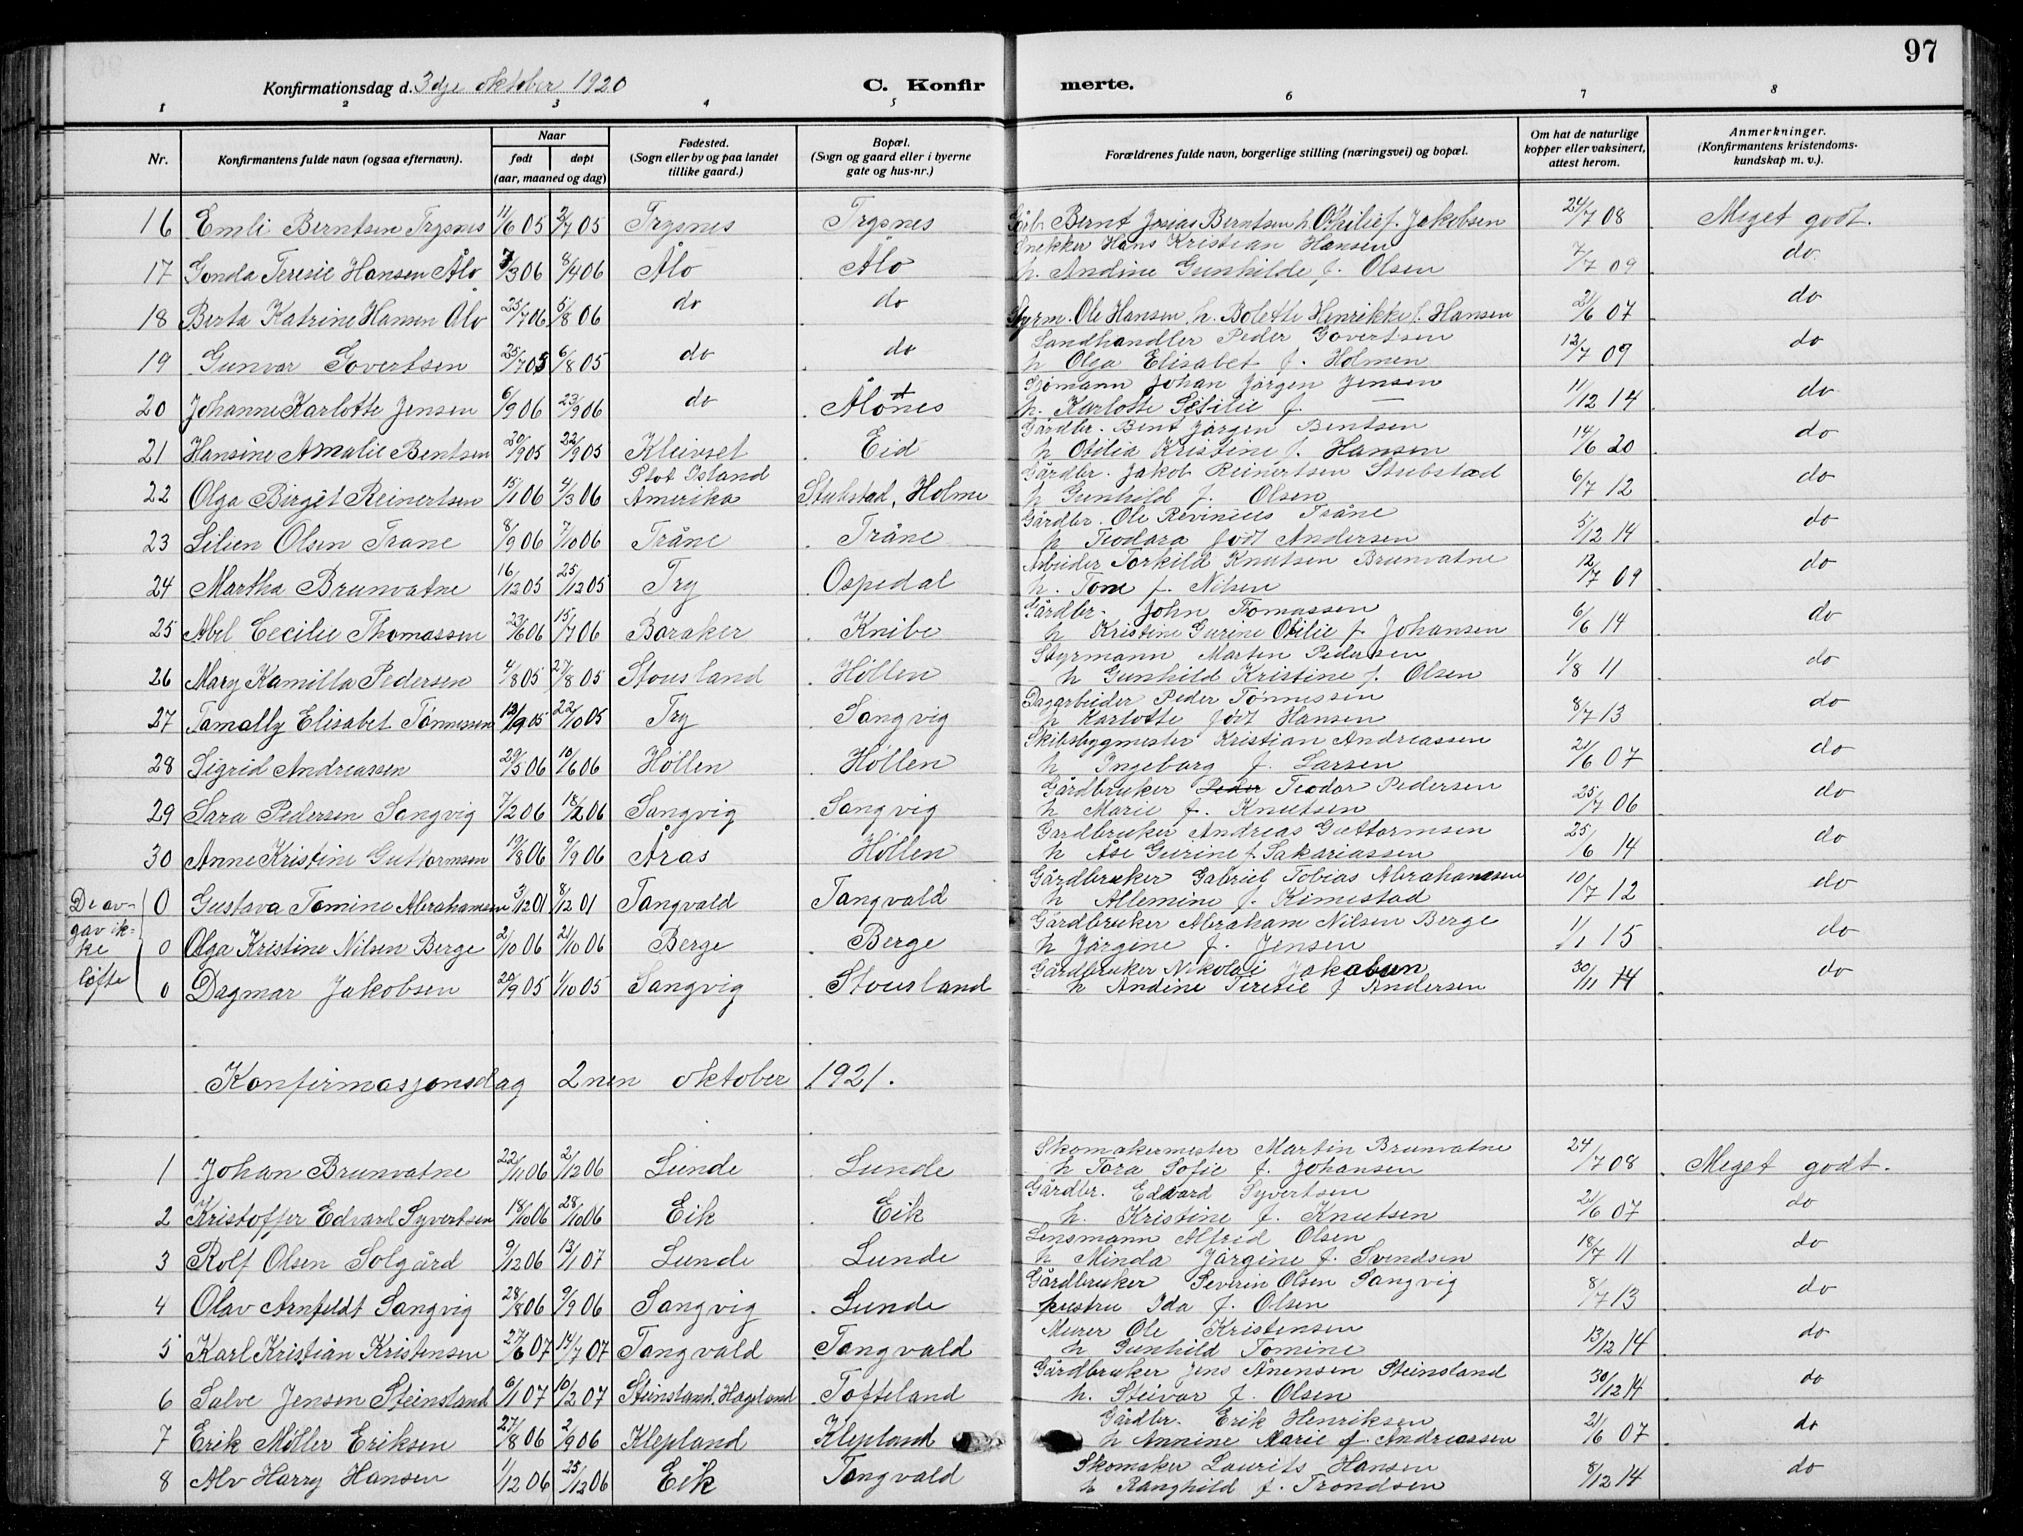 97
Konfirmationsdag d. 3dje oktober 1920 C. Konfirmerte.
1 2 3 4 5 6 7 8
Nr. Konfirmantens fulde navn (ogsaa efternavn). Naar født døpt (aar, maaned og dag) Fødested. (Sogn eller by og paa landet tillike gaard.) Bopæl. (Sogn og gaard eller i byerne gate og hus-nr.) Forældrenes fulde navn, borgerlige stilling (næringsvei) og bopæl. Om hat de naturlige kopper eller vaksinert, attest herom. Anmerkninger. (Konfirmantens kristendomskundskap m. v.).
16 Emli Berntsen Trysnes 11/6 05 2/7 05 Trysnes Trysnes Gårb. Bernt Josias Berntsen h. Othilie f. Jakobsen 24/7 08 Meget godt
17 Gonda Teresie Hansen Ålo 7/3 06 8/4 06 Ålo Ålo Snekker Hans Kristian Hansen
h. Andine Gunhilde f. Olsen 7/7 09 do
18 Berta Katrine Hansen Ålo 25/7 06 5/8 06 do do Styrm. Ole Hansen h. Bolette Henrikke f. Hansen 21/6 07 do
19 Gunvor Govertsen 25/7 05 6/8 05 do do Landhandler Peder Govertsen
h Olga Elisabet f. Holmen 12/7 09 do
20 Johanne Karlotte Jensen 6/9 06 23/9 06 do Ålones Sjømann Johan Jörgen Jensen
h. Karlotte Sesilie f. — 11/12 14 do
21 Hansine Amalie Bentsen 20/9 05 22/9 05 Kleivset Eid Gårdbr. Bent Jörgen Bentsen
h Otilia Kristine f. Hansen 14/6 20 do
22 Olga Birgit Reinertsen 15/1 06 4/3 06 Stot Island
Amerika Stubstad, Holme Gårdbr. Jakob Reinertsen Stubstad
h Gunhild f. Olsen 6/7 12 do
23 Lilien Olsen Trane 8/9 06 7/10 06 Tråne Tråne Gårdbr. Ole Revinius Tråne
h Teodora født Andersen 5/12 14 do
24 Martha Brunvatne 16/12 05 25/12 05 Try Ospedal Arbeider Torkild Knutsen Brunvatne
h. Tone f. Nilsen 12/7 09 do
25 Abel Cecilie Thomassen 23/6 06 15/7 06 Baraker Knibe Gårdbr. John Tomassen
h Kristine Gurine Otilie f. Johansen 6/6 14 do
26 Mary Kamilla Pedersen 4/8 05 27/8 05 Stousland Höllen Styrmann Marten Pedersen
h Gunhild Kristine f. Olsen 1/8 11 do
27 Tamally Elisabet Tönnessen 12/9 05 22/10 05 Try Langvig Dagarbeider Peder Tönnessen
h Karlotte født Hansen 8/7 13 do
28 Sigrid Andreassen 29/5 06 10/6 06 Höllen Höllen Skibsbygmester Kristian Andreassen
h Ingeborg f. Larsen 21/6 07 do
29 Sara Pedersen Langvig 7/2 06 18/2 06 Langvig Langvig Gårdbruker Peder Teodor Pedersen
h Marie f. Knutsen 25/7 06 do
30 Anne Kristine Guttormsen 19/8 06 9/9 06 Åras Höllen Gardbruker Andreas Guttormsen
h Åse Gurine f. Sakariassen 25/6 14 do
De av- 0 Gustava Tomine Abrahamsen 3/12 01 8/12 01 Tangvald Tangvald Gårdbruker Gabriel Tobias Abrahamsen
h Allemine f. Kimestad 10/7 12 do
gav ik-
ke 0 Olga Kristine Nilsen Berge 2/10 06 21/10 06 Berge Berge Gårdbruker Abraham Nilsen Berge
h Jörgine f. Jensen 1/1 15 do
løfte 0 Dagmar Jakobsen 20/9 05 1/10 05 Langvig Stousland Gårdbruker Nikolai Jakobsen
h Andine Teresie f Andersen 30/11 14 do
Konfirmasjonsdag 2nen oktober 1921.
1 Johan Brunvatne 22/11 06 2/12 06 Lunde Lunde Skomakermester Martin Brunvatne
h Tora Sofie f. Johansen 24/7 08 Meget godt.
2 Kristoffer Edvard Syvertsen 18/10 06 28/10 06 Eik Eik Gårdbr. Edvard Syvertsen
h. Kristine f. Knutsen 21/6 07 do
3 Rolf Olsen Solgård 9/12 06 13/1 07 Lunde Lunde Lensmann Alfred Olsen
h Minda Jörgine f. Svendsen 18/7 11 do
4 Olav Arnfeldt Langvig 28/8 06 9/9 06 Langvig Lunde Gårdbruker Severin Olsen Langvig
hustru Ida f. Olsen 8/7 13 do
5 Karl Kristian Kristensen 27/6 07 14/7 07 Tangvald Tangvald Murer Ole Kristensen
h Gunhild Tomine 13/12 14 do
6 Salve Jensen Steinsland 6/1 07 10/2 07 Steinsland Hægeland Tofteland Gårdbruker Jens Ånensen Steinsland
h. Steivor f. Olsen 30/12 14 do
7 Erik Möller Eriksen 27/8 06 2/9 06 Klepland Klepland Gårdbr. Erik Henriksen
h Annine Marie f. Andreassen 21/6 07 do
8 Alv Harry Hansen 1/12 06 25/12 06 Eik Tangvald Skomaker Laurits Hansen
h Ranghild f. Trondsen 8/12 14 do